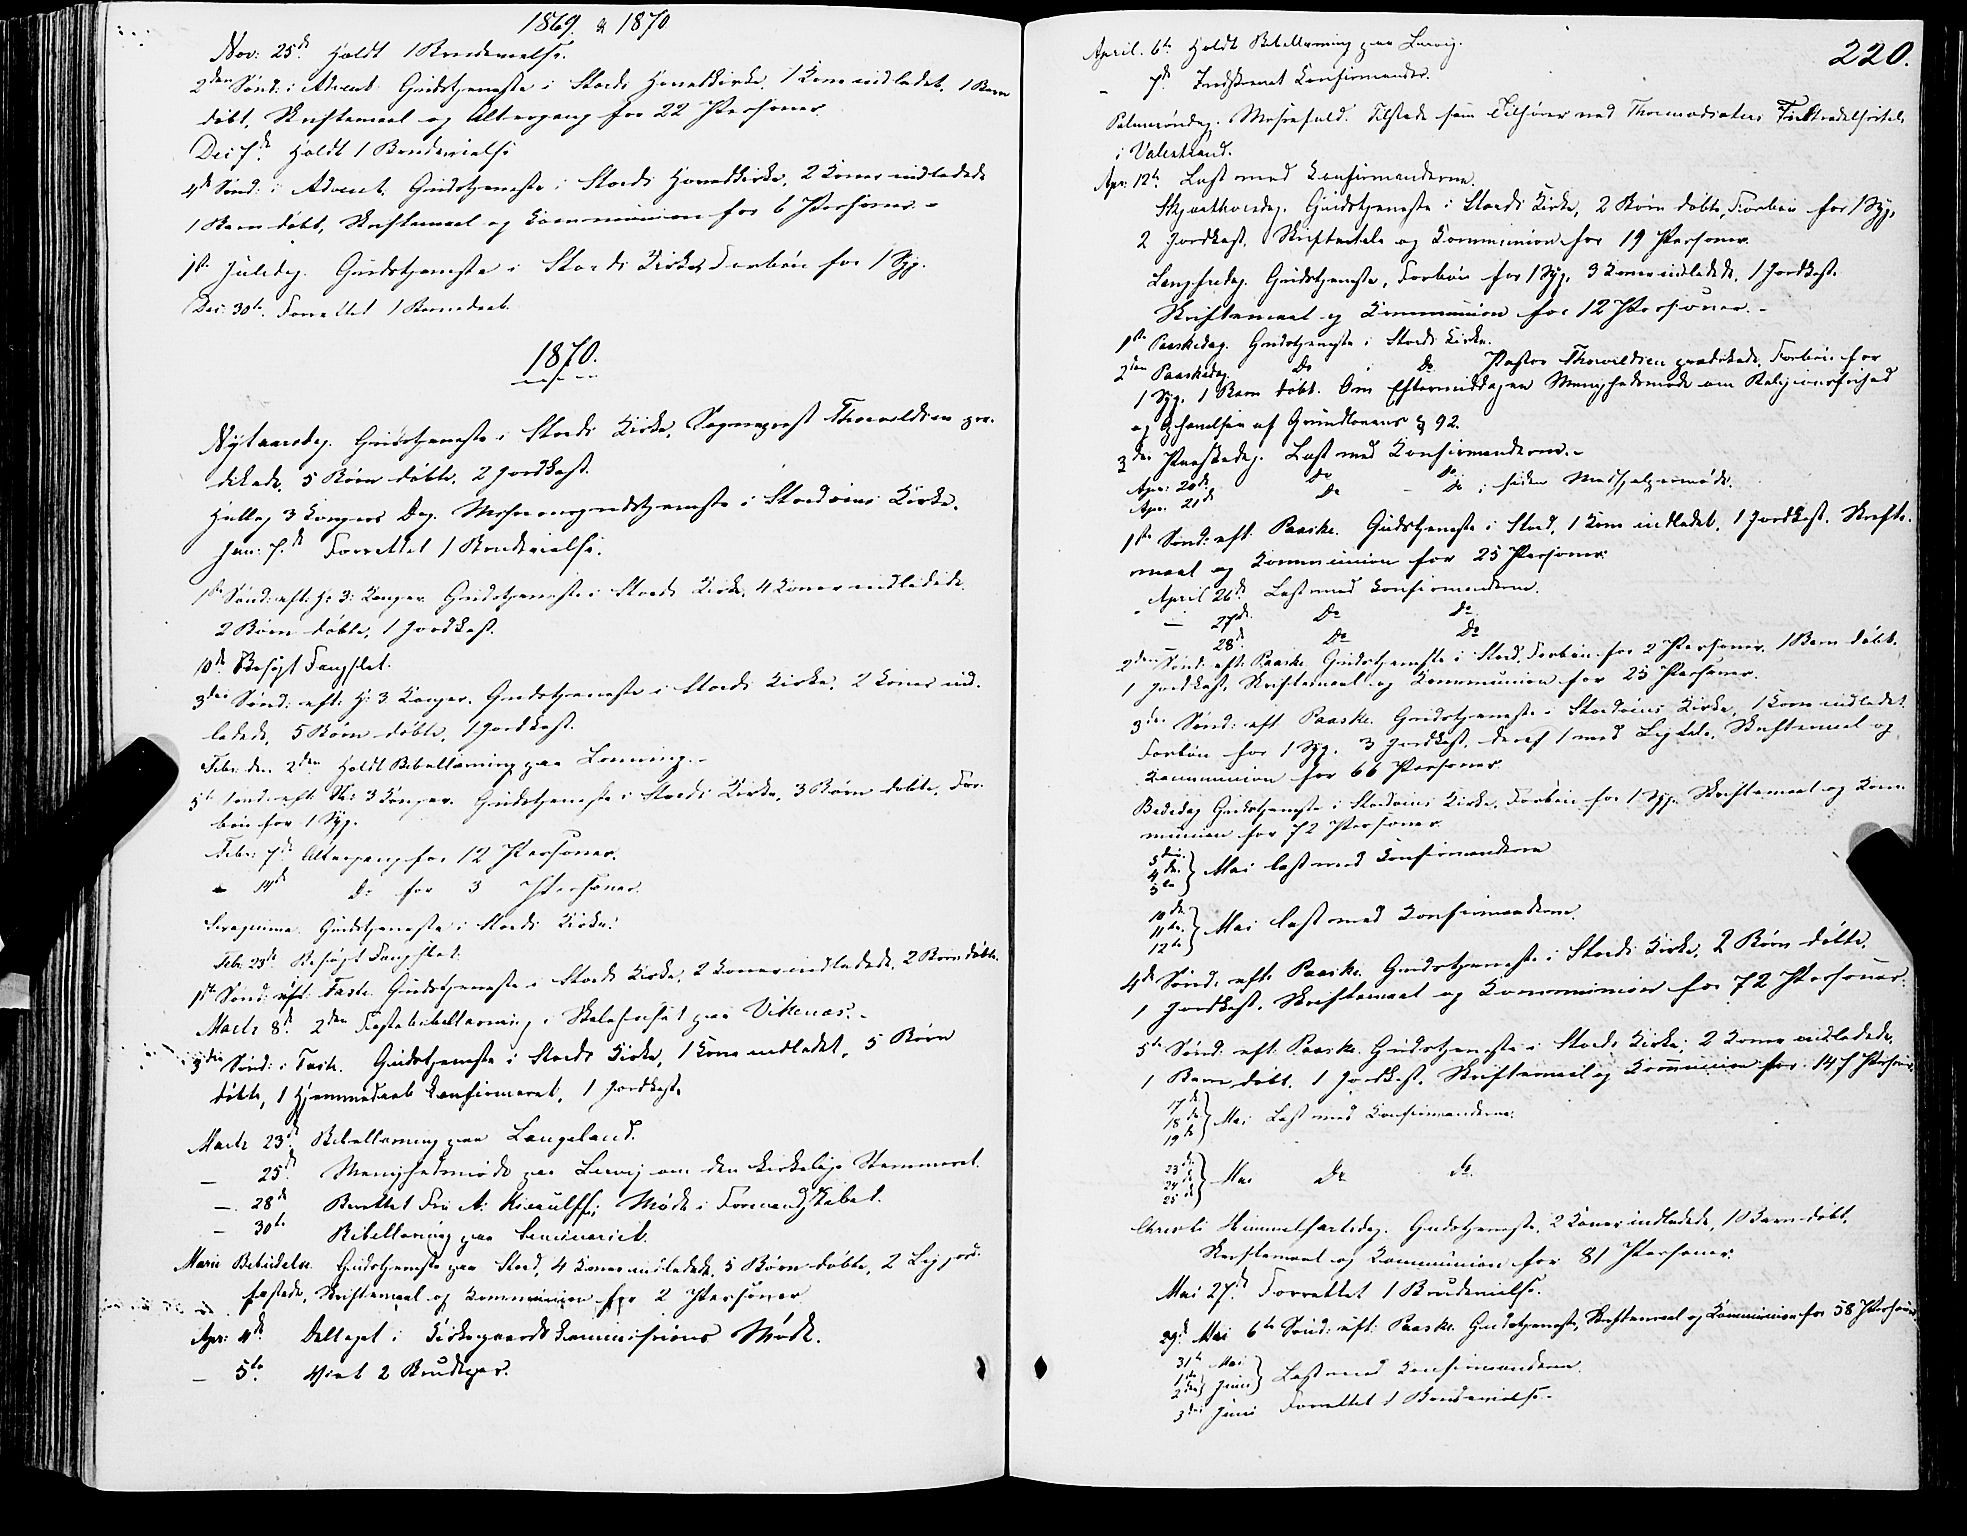 1869. & 1870
Nov: 25de Holdt 1 Brudevielse.
2den Sønd: i Advent. Gudstjeneste i Stords Hovedkirke. 1 Kone indledet. 1 Barn
døbt. Skriftemaal og Altergang for 22 Personer.
Dec 7de Holdt 1 Brudevielse
4de Sønd: i Advent. Gudstjeneste i Stords Hovedkirke, 2 Koner indledede
1 Barn døbt, Skriftemaal og Kommunion for 6 Personer. -
1ste Juledag. Gudstjeneste i Stords Kirke, Forbøn for 1 Syg.
Dec: 30te. Forrettet 1 Barnedaab.
1870.
Nytaarsdag. Gudstjeneste i Stords Kirke, Sogneprest Thorvaldsen præ-
dikede. 5 Børn døbte. 2 Jordkast.
Hellig 3 Kongers Dag. Missionsgudstjeneste i Stordøens Kirke.
Jan: 7de Forrettet 1 Brudevielse.
1ste Sønd: eft. H: 3: Konger. Gudstjeneste i Stords Kirke, 4 Koner indledede.
2 Børn døbte, 1 Jordkast.
10de Besøgt Fængslet.
3die Sønd: eft: H: 3 Konger. Gudstjeneste i Stords Kirke, 2 Koner ind-
ledede, 5 Børn døbte, 1 Jordkast.
Febr. den 2den Holdt Bibellæsning paa Lønning. -
5te Sønd: eft: H: 3 Konger. Gudstjeneste i Stords Kirke, 3 Børn døbte, For-
bøn for 1 Syg.
Febr: 7de Altergang for 12 Personer.
- 14de Do for 3 Personer.
Sexagesima. Gudstjeneste i Stords Kirke.
Feb: 23de Besøgt Fængslet.
1ste Sønd: i Faste. Gudstjeneste i Stords Kirke, 2 Koner indledede, 2 Børn døbte.
Marts 8de 2den Fastebibellæsning i Skolehuset paa Vikenæs. -
3die Sønd: i Faste. Gudstjeneste i Stords Kirke, 1 Kone indledet, 5 Børn
døbte, 1 Hjemmedaab konfirmeret, 1 Jordkast.
Marts 23de Bibellæsning paa Langeland.
— 25de Menighedsmøde paa Lervig om den kirkelige Stemmeret.
— 28de Berettet Fru A: ; Møde i Formandskabet.
— 30te Bibellæsning paa Seminariet.
Mariæ Bebudelse. Gudstjeneste paa Stord, 4 Koner indledede, 5 Børn døbte, 2 Lig jord-
fæstede, Skriftemaal og Kommunion for 2 Personer
Apr: 4de Deltaget i Kirkegaards Kommissions Møde.
— 5te Viet 2 Brudepar.
220.
April. 6te Holdt Bibellæsning paa Lervig.
- 7de Indskrevet Konfirmander.
Palmesøndag. Messefald. Tilstede som Tilhører ved
i Valestrand.
Apr: 12te. Læst med Konfirmanderne.
Skjærthorsdag. Gudstjeneste i Stords Kirke, 2 Børn døbte, Forbøn for 1 Syg,
2 Jordkast. Skriftetale og Kommunion for 19 Personer.
Langfredag. Gudstjeneste, Forbøn for 1 Syg, 3 Koner indledede, 1 Jordkast.
Skriftemaal og Kommunion for 12 Personer. -
1ste Paaskedag. Gudstjeneste i Stords Kirke.
2den Paaskedag. Do Do Pastor Thorvaldsen prædikede. Forbøn for
1 Syg. 1 Barn døbt. Om Eftermiddagen Menighedsmøde om Religionsfrihed
og Ophævelsen af Grundlovens § 92.
3die Paaskedag. Læst med Konfirmanderne. -
Apr: 20de Do Do
Apr: 21de Do - Do ; siden Mødt i
1ste Sønd: eft: Paaske. Gudstjeneste i Stord, 1 Kone indledet, 1 Jordkast. Skrifte-
maal og Kommunion for 25 Personer.
April 26de Læst med Konfirmanderne.
— 27de Do Do
— 28de Do Do
2den Sønd: eft: Paaske, Gudstjeneste i Stord, Forbøn for 2 Personer. 1 Barn døbt.
1 Jordkast, Skriftemaal og Kommunion for 25 Personer.
3die Sønd: eft Paaske. Gudstjeneste i Stordøens Kirke, 1 Kone indledet
Forbøn for 1 Syg. 3 Jordkast, deraf 1 med Ligtale, Skriftemaal og
Kommunion for 66 Personer.
Bededag Gudstjeneste i Stordøens Kirke, Forbøn for 1 Syg. Skriftemaal og Kom-
munion for 72 Personer.
3die
4de } Mai læst med Konfirmanderne
5te
10de
11te } Mai læst med Konfirmanderne.
12te
4de Sønd. eft: Paaske. Gudstjeneste i Stords Kirke, 2 Børn døbte.
1 Jordkast. Skriftemaal og Kommunion for 72 Personer.
5te Sønd: eft. Paaske. Gudstjeneste i Stords Kirke, 2 Koner indledede.
1 Barn døbt. 1 Jordkast. Skriftemaal og Kommunion for 147 Personer.
17de
18de } Mai Læst med Konfirmanderne.
19de
23de
24de } Mai Do Do
25de
Christi Himmelfartsdag. Gudstjeneste. 2 Koner indledede, 1 Barn døbt.
Skriftemaal og Kommunion for 81 Personer.
Mai 27de Forrettet 1 Brudevielse.
29de Mai 6te Sønd: eft: Paaske. Gudstjeneste, Skriftemaal og Kommunion for 58 Personer
31te Mai
1ste } Læst med Konfirmanderne.
2den Juni
3die Juni Forrettet 1 Brudevielse. -